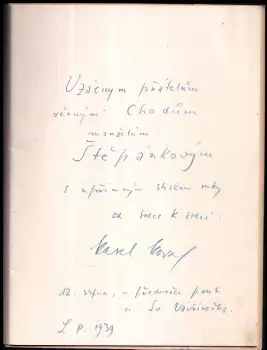 Vzácným přátelům
věrným Chodům
manželům
Štěpánkovým
s upřímným stiskem ruky
od srdce k srdci:
Karel
12. srpna, v předvečer pouti
u Sv Vavřinečka.
L. p. 1939